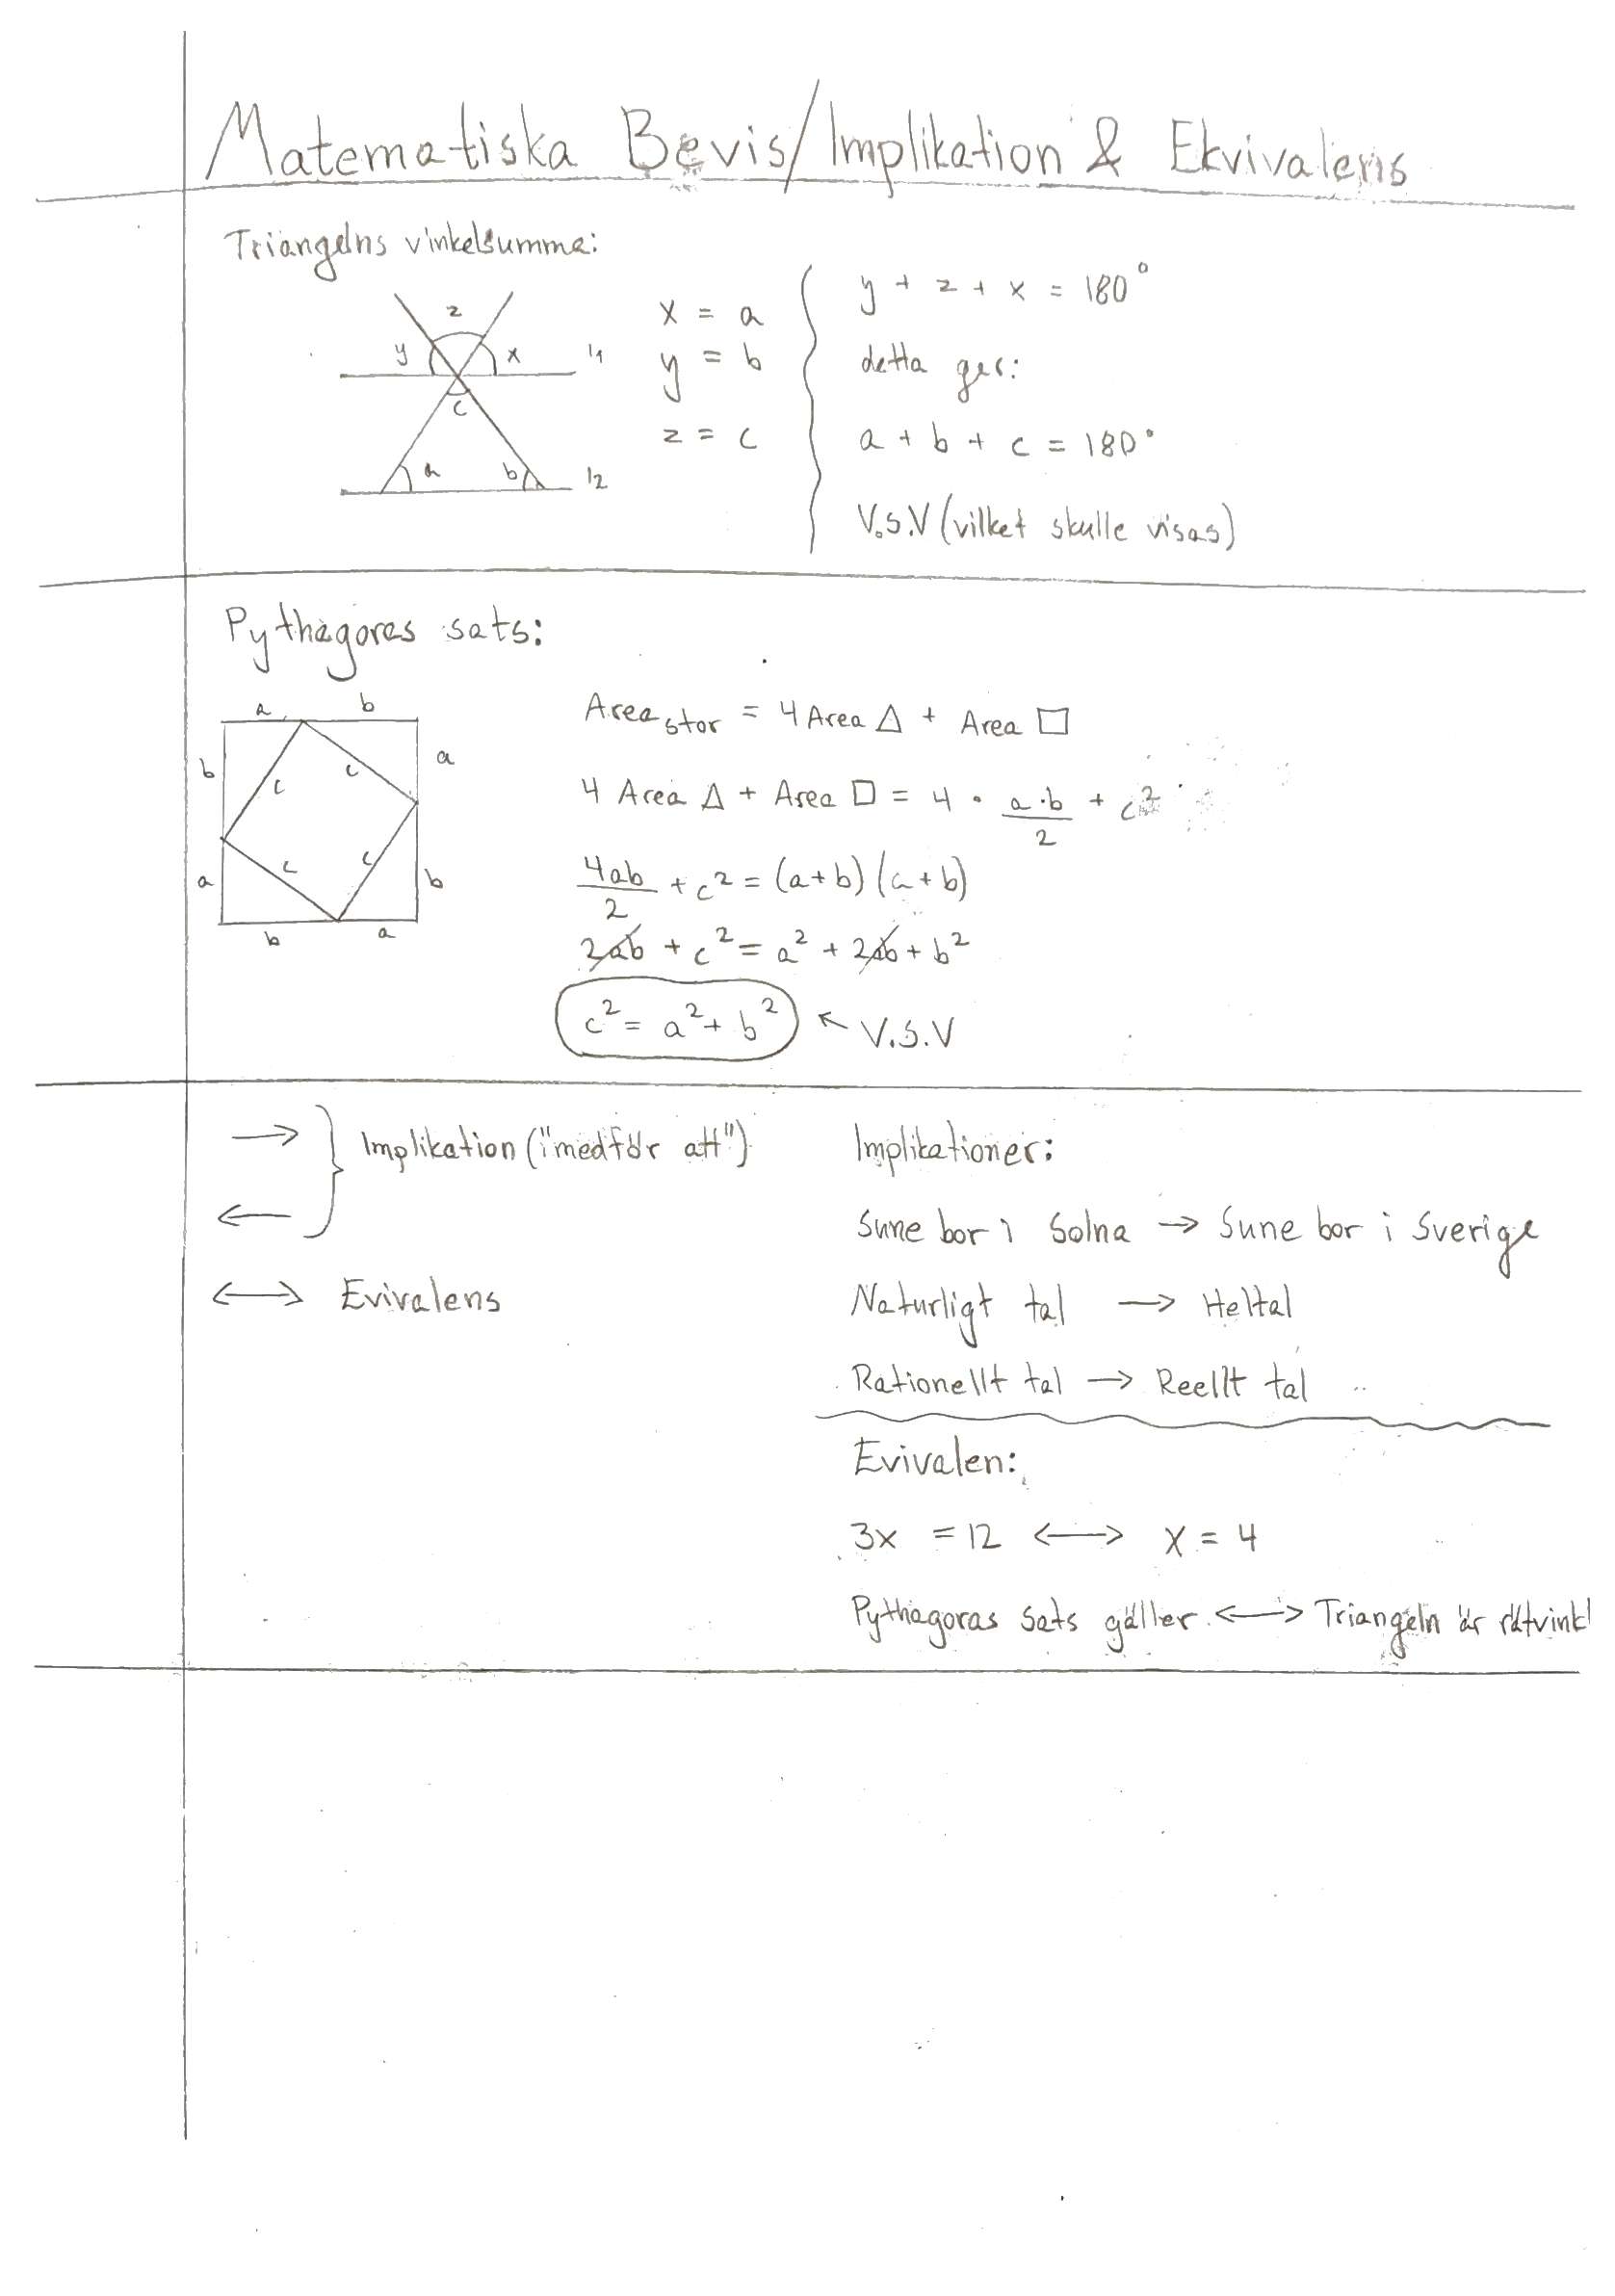 Matematiska Bevis/Implikation & Ekvivalens
Triangelns vinkelsumma:
z
y x l1
c
a b l2
x = a
y = b
z = c
y + z + x = 180°
detta ger:
a + b + c = 180°
V.S.V (vilket skulle visas)
Pythagoras sats:
a b
b c c a
a c c b
b a
Area stor = 4 Area △ + Area □
4 Area △ + Area □ = 4 · a·b/2 + c²
4ab/2 + c² = (a+b)(a+b)
2ab + c² = a² + 2ab + b²
c² = a² + b² ← V.S.V
→
← } Implikation ("medför att")
↔ Evivalens
Implikationer:
Sune bor i Solna → Sune bor i Sverige
Naturligt tal → Heltal
Rationellt tal → Reellt tal
Evivalen:
3x = 12 ↔ x = 4
Pythagoras sats gäller ↔ Triangeln är rätvinkl